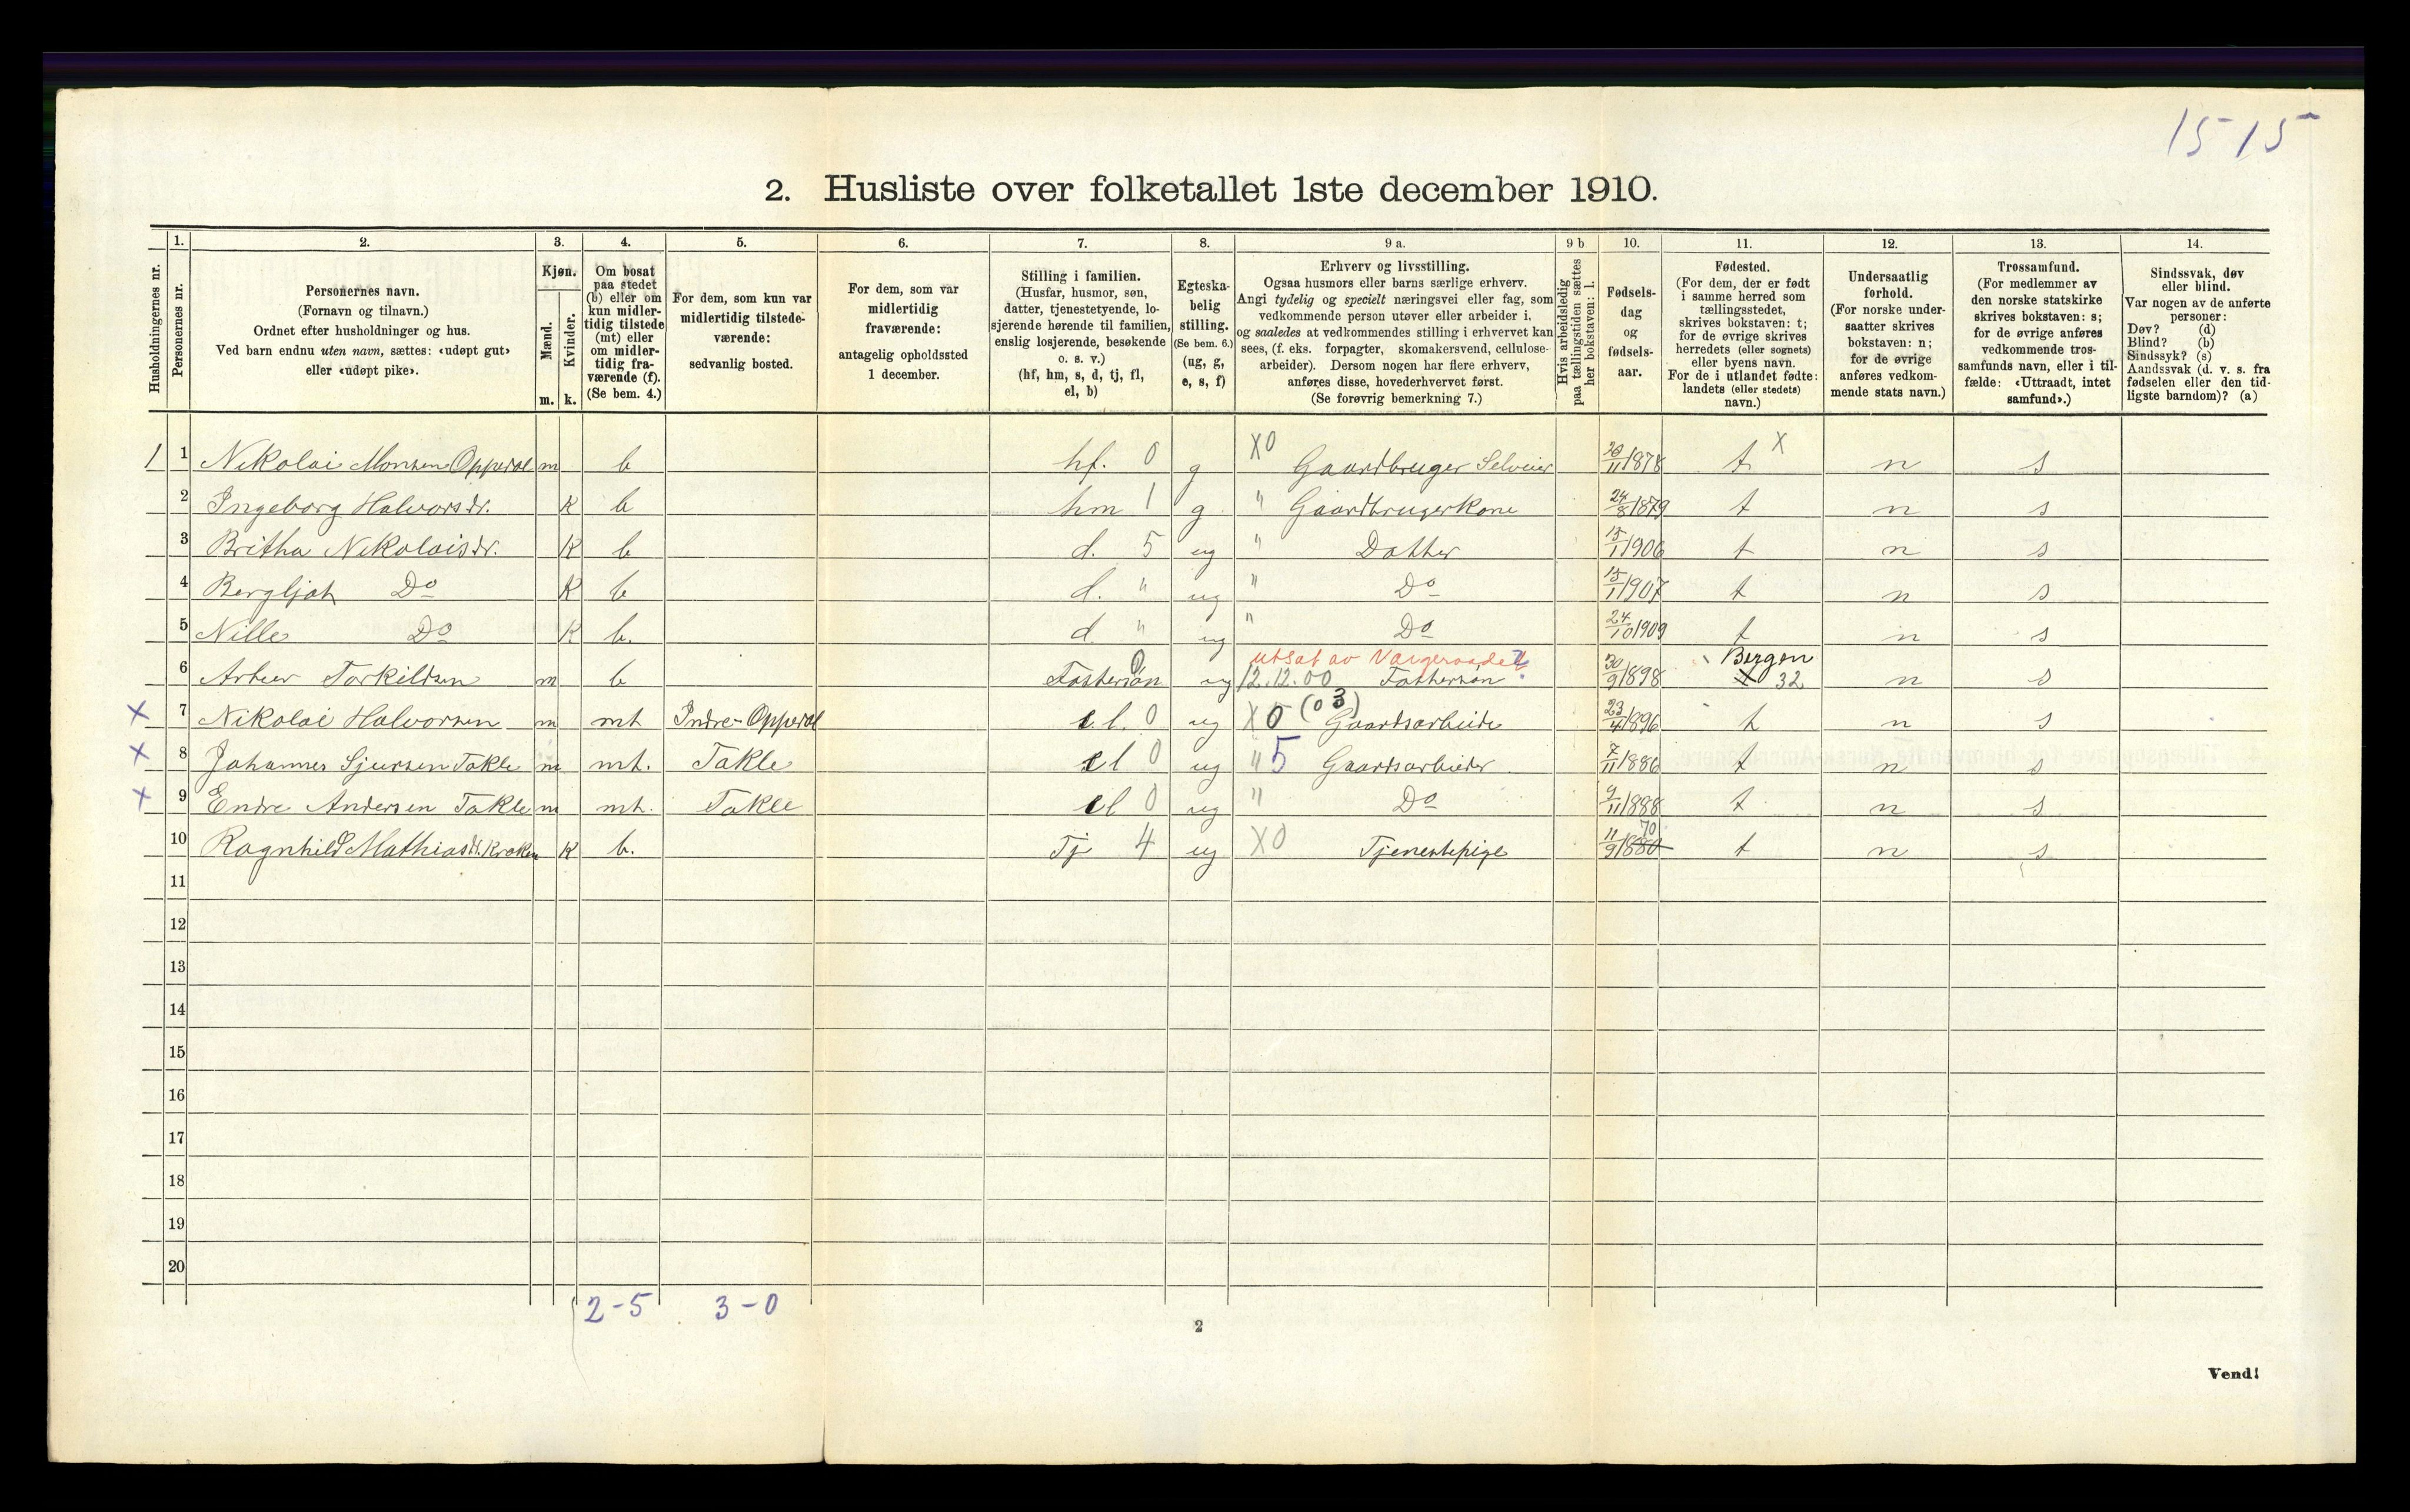 15 15
2. Husliste over folketallet 1ste december 1910.
Husholdningernes nr.
1. Personernes nr.
2. Personernes navn.
(Fornavn og tilnavn.)
Ordnet efter husholdninger og hus.
Ved barn endnu uten navn, sættes: «udøpt gut»
eller «udøpt pike».
3. Kjøn.
Mænd. m.
Kvinder. k.
4. Om bosat
paa stedet
(b) eller om
kun midler-
tidig tilstede
(mt) eller
om midler-
tidig fra-
værende (f).
(Se bem. 4.)
5. For dem, som kun var
midlertidig tilstede-
værende:
sedvanlig bosted.
6. For dem, som var
midlertidig
fraværende:
antagelig opholdssted
1 december.
7. Stilling i familien.
(Husfar, husmor, søn,
datter, tjenestetyende, lo-
sjerende hørende til familien,
enslig losjerende, besøkende
o. s. v.)
(hf, hm, s, d, tj, fl,
el, b)
8. Egteska-
belig
stilling.
(Se bem. 6.)
(ug, g,
e, s, f)
9 a. Erhverv og livsstilling.
Ogsaa husmors eller barns særlige erhverv.
Angi tydelig og specielt næringsvei eller fag, som
vedkommende person utøver eller arbeider i,
og saaledes at vedkommendes stilling i erhvervet kan
sees, (f. eks. forpagter, skomakersvend, cellulose-
arbeider). Dersom nogen har flere erhverv,
anføres disse, hovederhvervet først.
(Se forøvrig bemerkning 7.)
9 b Hvis arbeidsledig
paa tællingstiden sættes
her bokstaven: l.
10. Fødsels-
dag
og
fødsels-
aar.
11. Fødested.
(For dem, der er født
i samme herred som
tællingsstedet,
skrives bokstaven: t;
for de øvrige skrives
herredets (eller sognets)
eller byens navn.
For de i utlandet fødte:
landets (eller stedets)
navn.)
12. Undersaatlig
forhold.
(For norske under-
saatter skrives
bokstaven: n;
for de øvrige
anføres vedkom-
mende stats navn.)
13. Trossamfund.
(For medlemmer av
den norske statskirke
skrives bokstaven: s;
for de øvrige anføres
vedkommende tros-
samfunds navn, eller i til-
fælde: «Uttraadt, intet
samfund».)
14. Sindssvak, døv
eller blind.
Var nogen av de anførte
personer:
Døv? (d)
Blind? (b)
Sindssyk? (s)
Aandssvak (d. v. s. fra
fødselen eller den tid-
ligste barndom)? (a)
1 1 Nikolai Monsen Opperdal m b hf. 0 g X0 Gaardbruger Selveier 20/11 1878 t X n s
2 Ingeborg Halvorsdr. K b hm 1 g " Gaardbrugerkone 24/8 1879 t n s
3 Britha Nikolaisdr. K b d. 5 ug " Datter 15/1 1906 t n s
4 Bergljot Do K b d. " ug " Do 15/1 1907 t n s
5 Nille Do K b. d. " ug " Do 24/10 1909 t n s
utsat av Værgeraadet? Bergen
6 Torkildsen m b Fostersøn 0 ug 12.12.00 Fostersøn 30/9 1898 32 n s
X 7 Nikolai Halvorsen m mt Indre-Opperdal el. 0 ug X 0 (03) Gaardsarbeide 23/4 1896 t n s
X 8 Johannes Sjursen Takle m mt. Takle el 0 ug " 5 Gaardsarbeider 7/11 1886 t n s
X 9 Endre Andersen Takle m mt. Takle el 0 ug " Do 9/11 1888 t n s
10 Ragnhild Mathiasdr. Kraken K b. Tj 4 ug X0 Tjenestepige 11/9 1880 70 t n s
11
12
13
14
15
16
17
18
19
20
2-5 3-0
2
Vend!